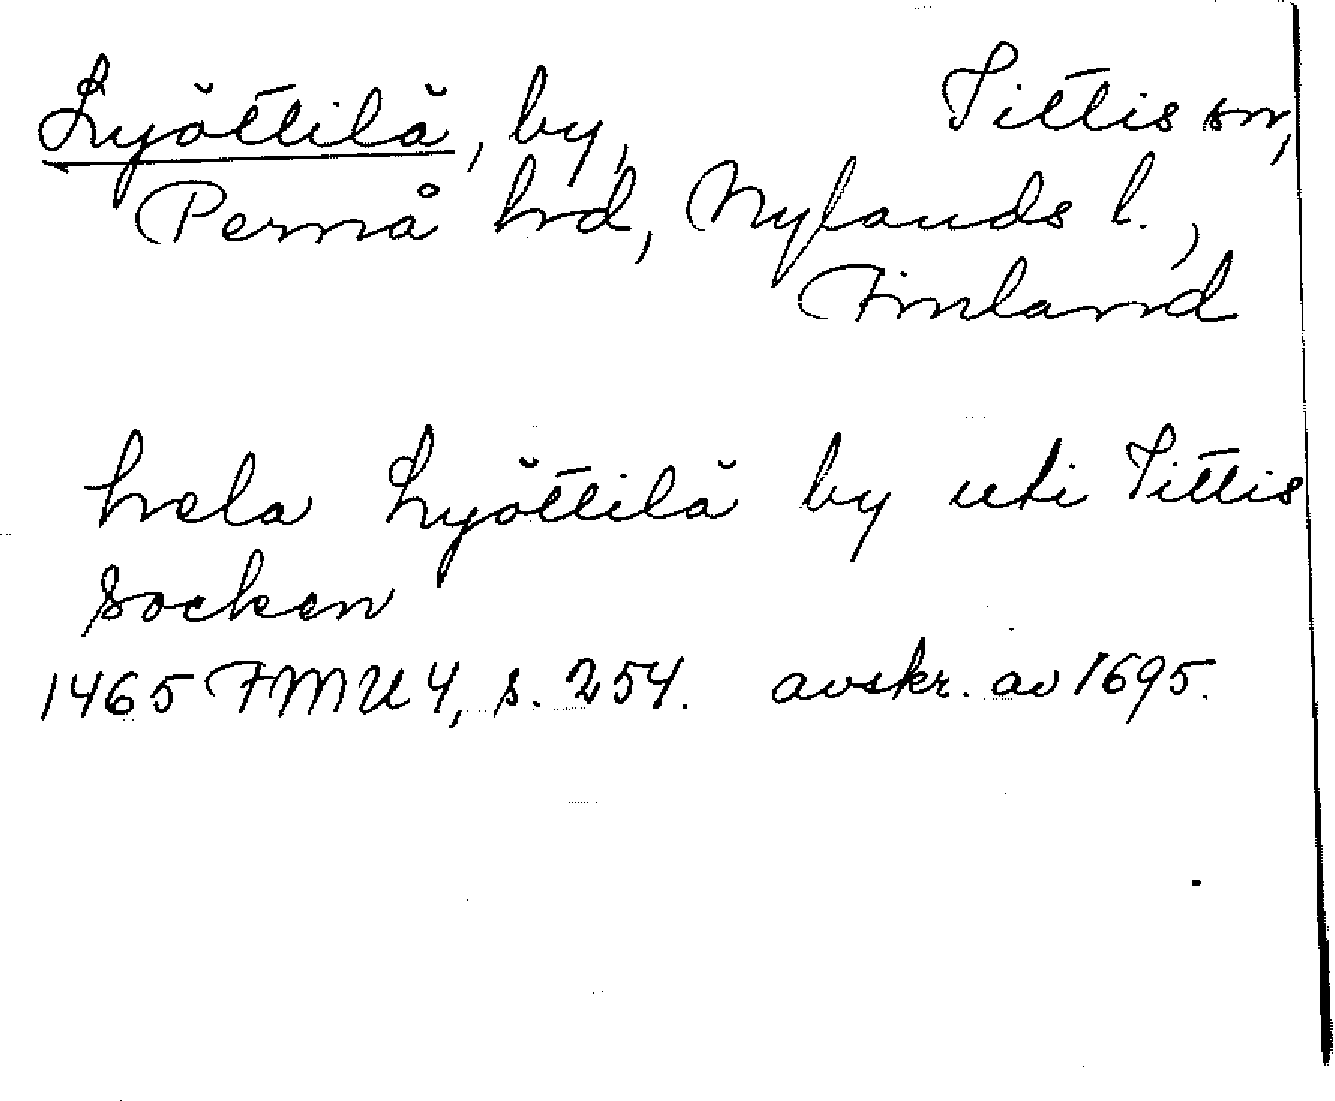 Lyöttilä, by, Tittis sn,
Pernå hrd, Nylands l.,
Finland
hela Lyöttilä by uti Tittis
Socken
1465 FMU 4, s. 254. avskr. av 1695.